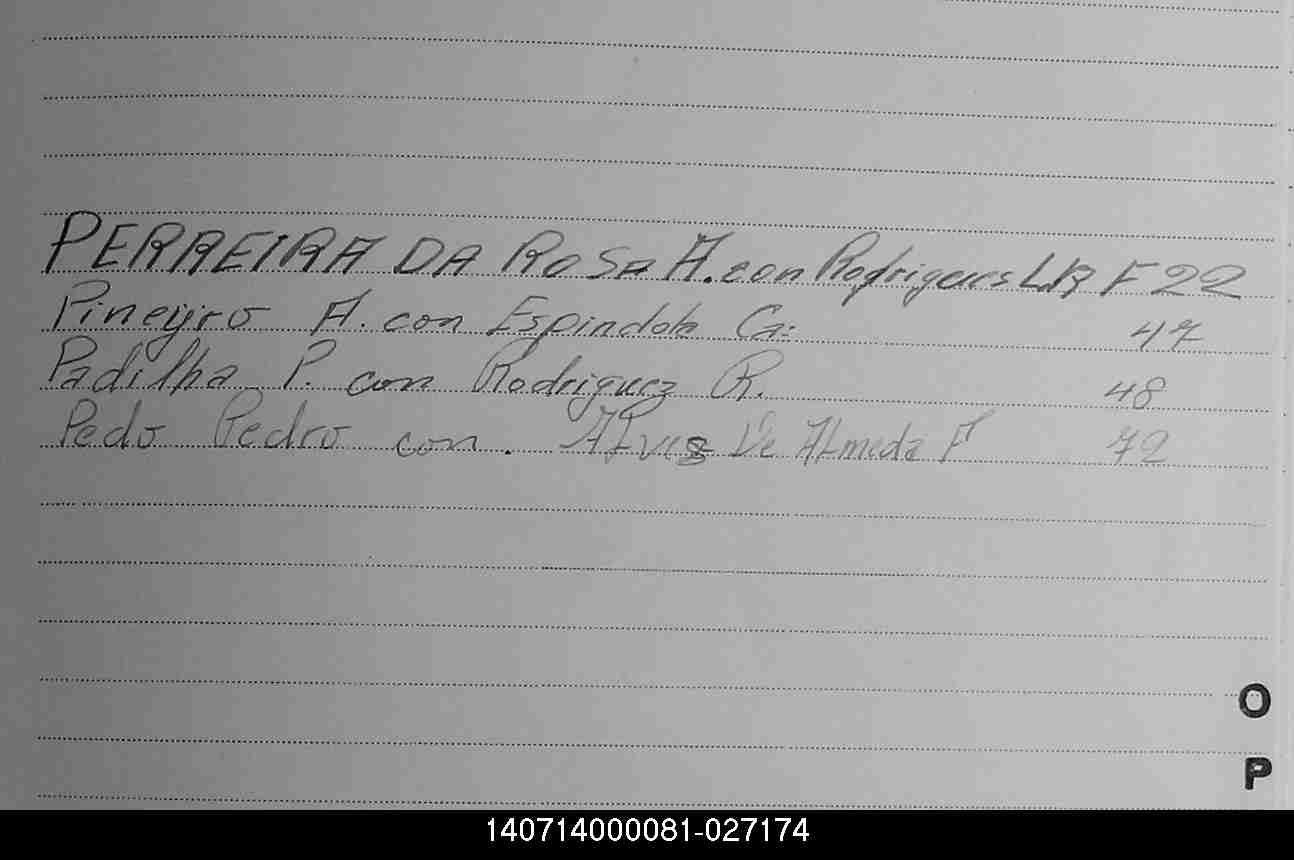 PERREIRA DA ROSA A. con Rodrigues L.R F 22
Pineyro A. con Espindola G: 47
Padilha P. con Rodriguez R. 48
Pedo Pedro con. Alves De Almeda F 72
O
P
140714000081-027174